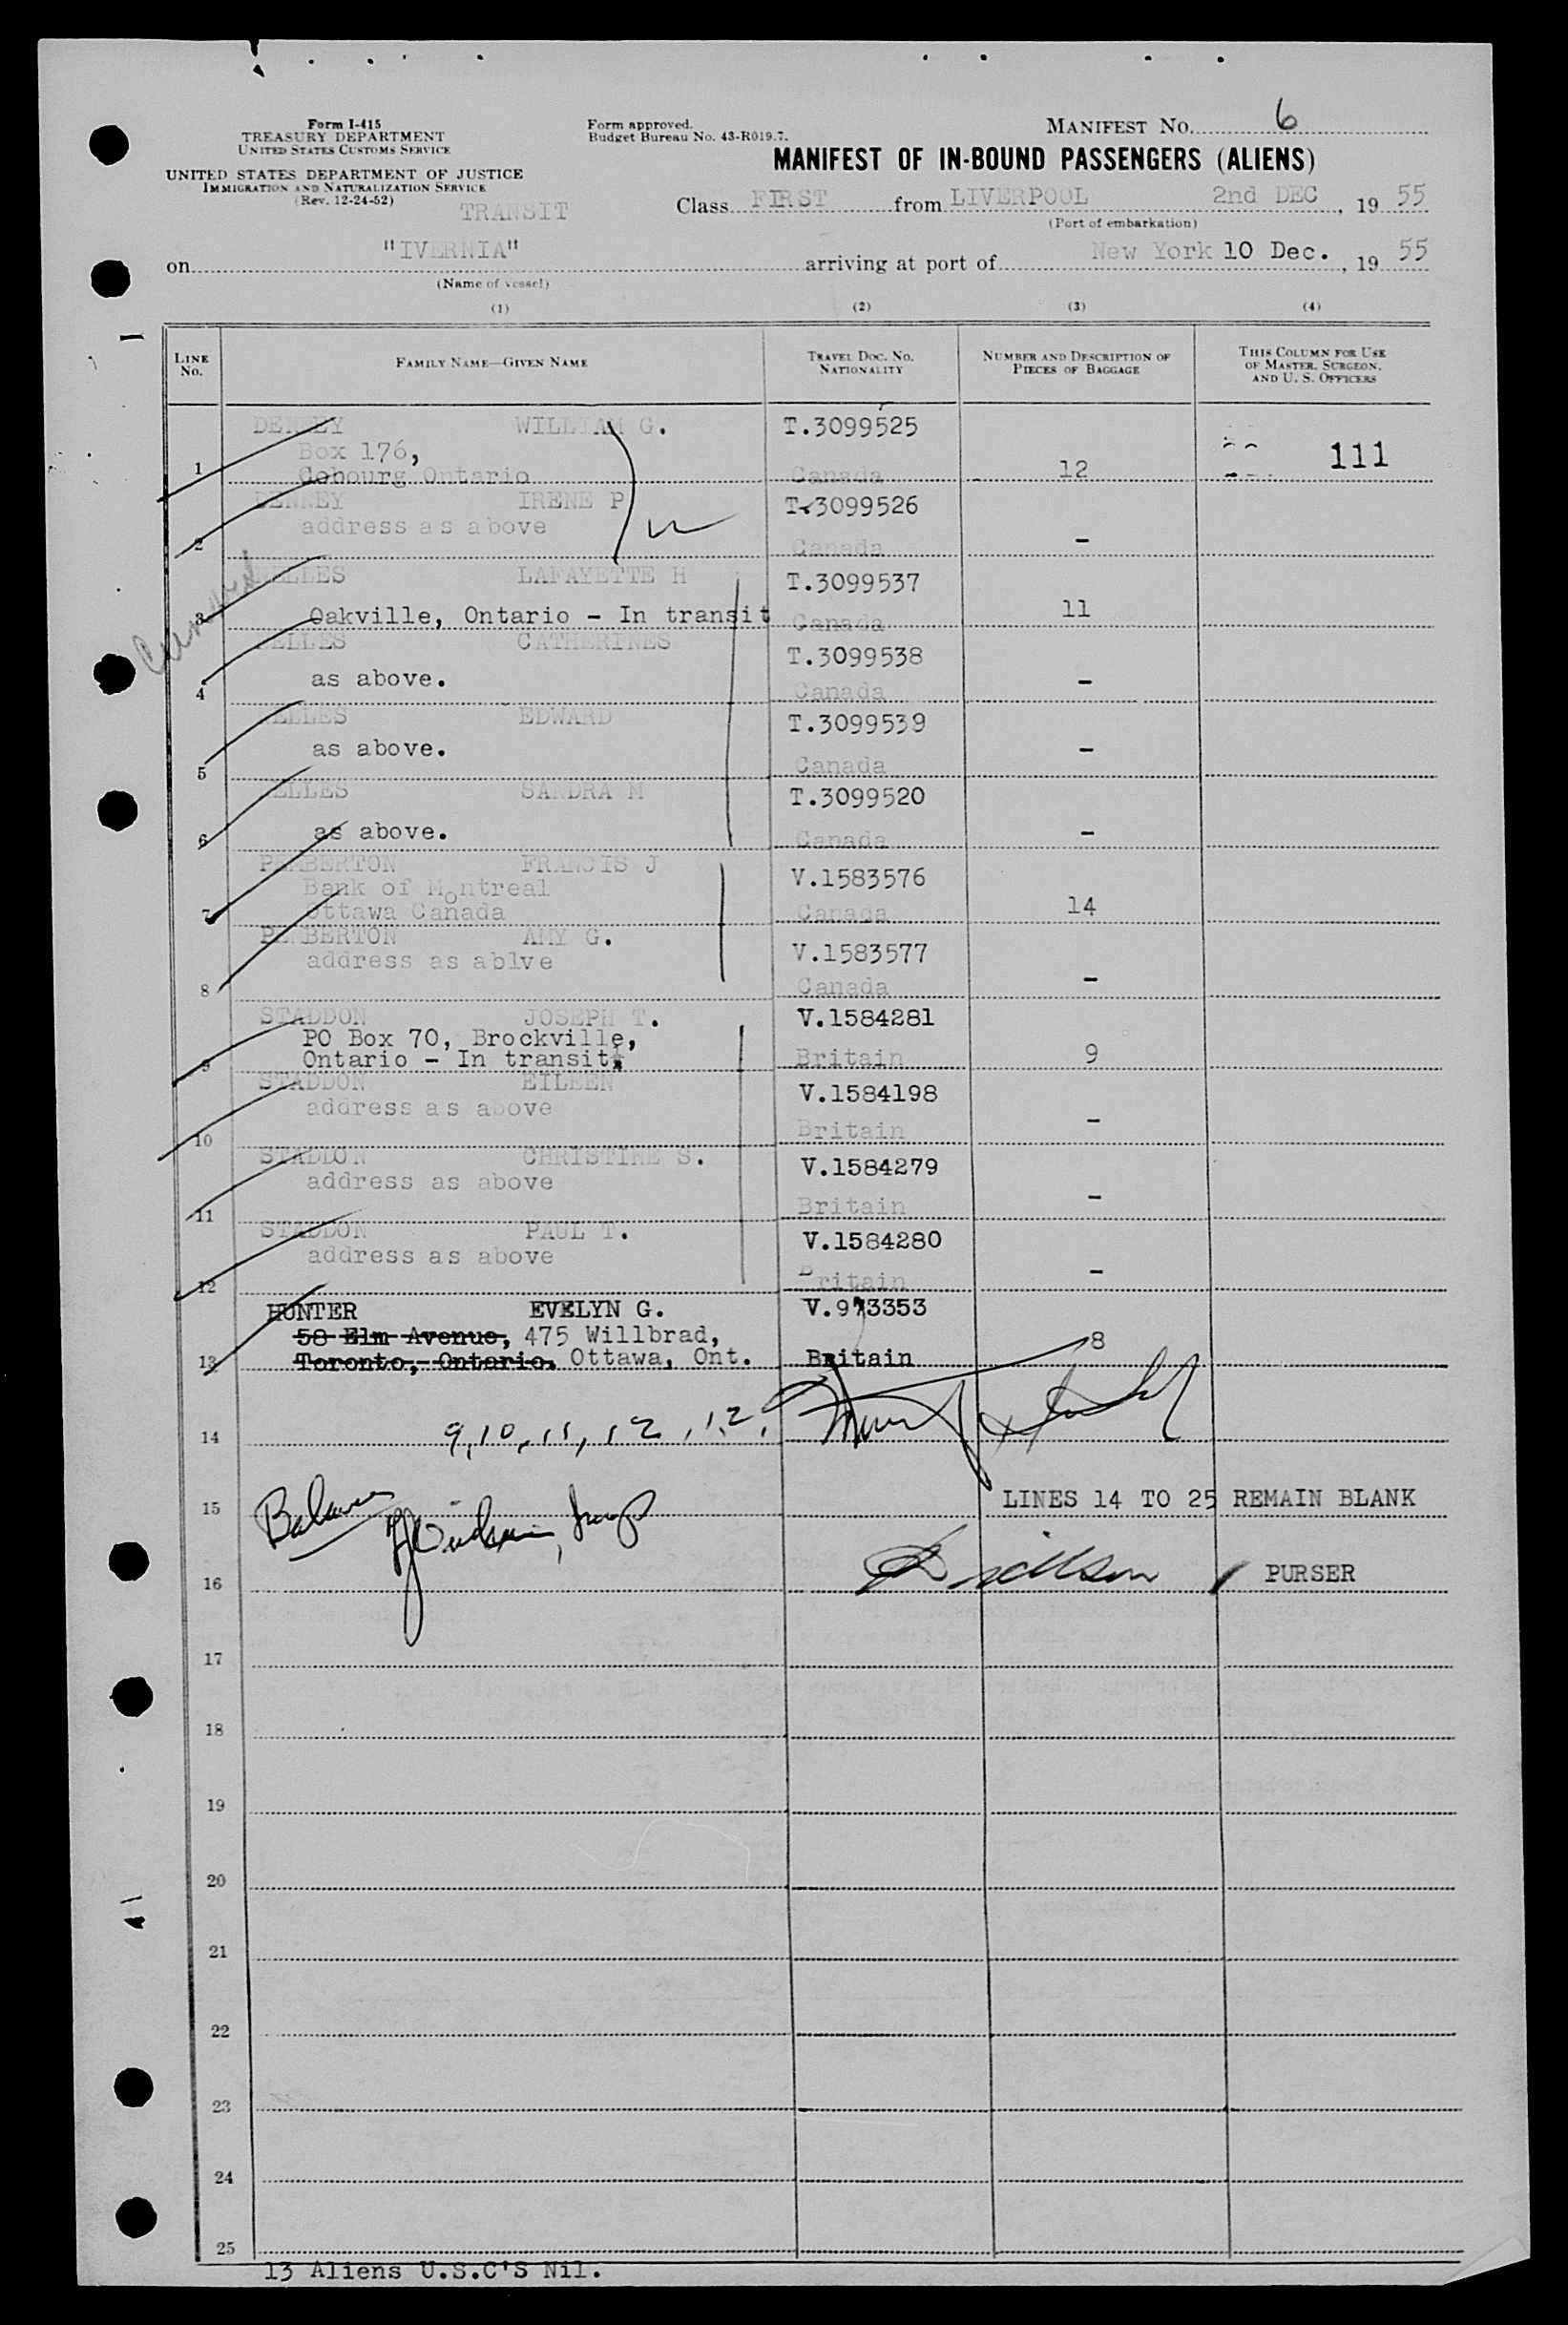 Form I-415
TREASURY DEPARTMENT
UNITED STATES CUSTOMS SERVICE
UNITED STATES DEPARTMENT OF JUSTICE
IMMIGRATION AND NATURALIZATION SERVICE
(Rev. 12-24-52)
Form approved.
Budget Bureau No. 43-R019.7.
MANIFEST No. 6
MANIFEST OF IN-BOUND PASSENGERS (ALIENS)
TRANSIT
Class FIRST from LIVERPOOL 2nd DEC, 19 55
(Port of embarkation)
on "IVERNIA" arriving at port of New York 10 Dec., 19 55
(Name of vessel)
(1) (2) (3) (4)
LINE No. FAMILY NAME—GIVEN NAME TRAVEL DOC. NO. NATIONALITY NUMBER AND DESCRIPTION OF PIECES OF BAGGAGE THIS COLUMN FOR USE OF MASTER, SURGEON, AND U. S. OFFICERS
WILLIAM G. T.3099525
Box 176, 111
1 Cobourg Ontario Canada 12
IRENE P T.3099526
address as above
2 Canada -
LAFAYETTE H T.3099537
3 Oakville, Ontario - In transit Canada 11
CATHERINES T.3099538
as above.
4 Canada -
EDWARD T.3099539
as above. -
5 Canada
SANDRA M T.3099520
6 as above. Canada -
PEMBERTON FRANCIS J V.1583576
Bank of Montreal
7 Ottawa Canada Canada 14
PEMBERTON AMY G. V.1583577
address as ablve
8 Canada -
STADDON JOSEPH T. V.1584281
PO Box 70, Brockville,
9 Ontario - In transit Britain 9
STADDON EILEEN V.1584198
address as above
10 Britain -
STADDON CHRISTINE S. V.1584279
address as above
11 Britain -
STADDON PAUL T. V.1584280
address as above
12 Britain -
HUNTER EVELYN G. V.973353
58 Elm Avenue, 475 Willbrad, 8
13 Toronto, Ontario. Ottawa, Ont. Britain
14 9, 10, 11, 12, 1, 2,
15 Balance LINES 14 TO 25 REMAIN BLANK
16 PURSER
17
18
19
20
21
22
23
24
25
13 Aliens U.S.C'S Nil.